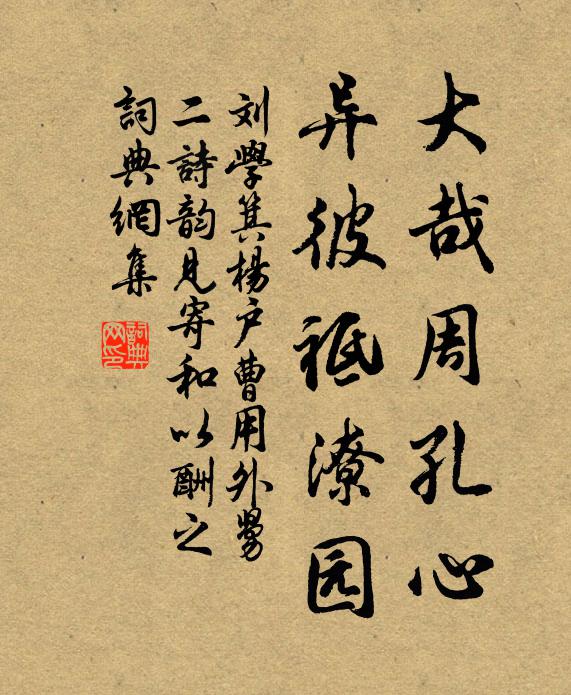 大哉周孔心
异彼祗潦园
刘學箕楊户曹用外舅
二詩韵見寄和以酬之
詞典網集
詞典网印